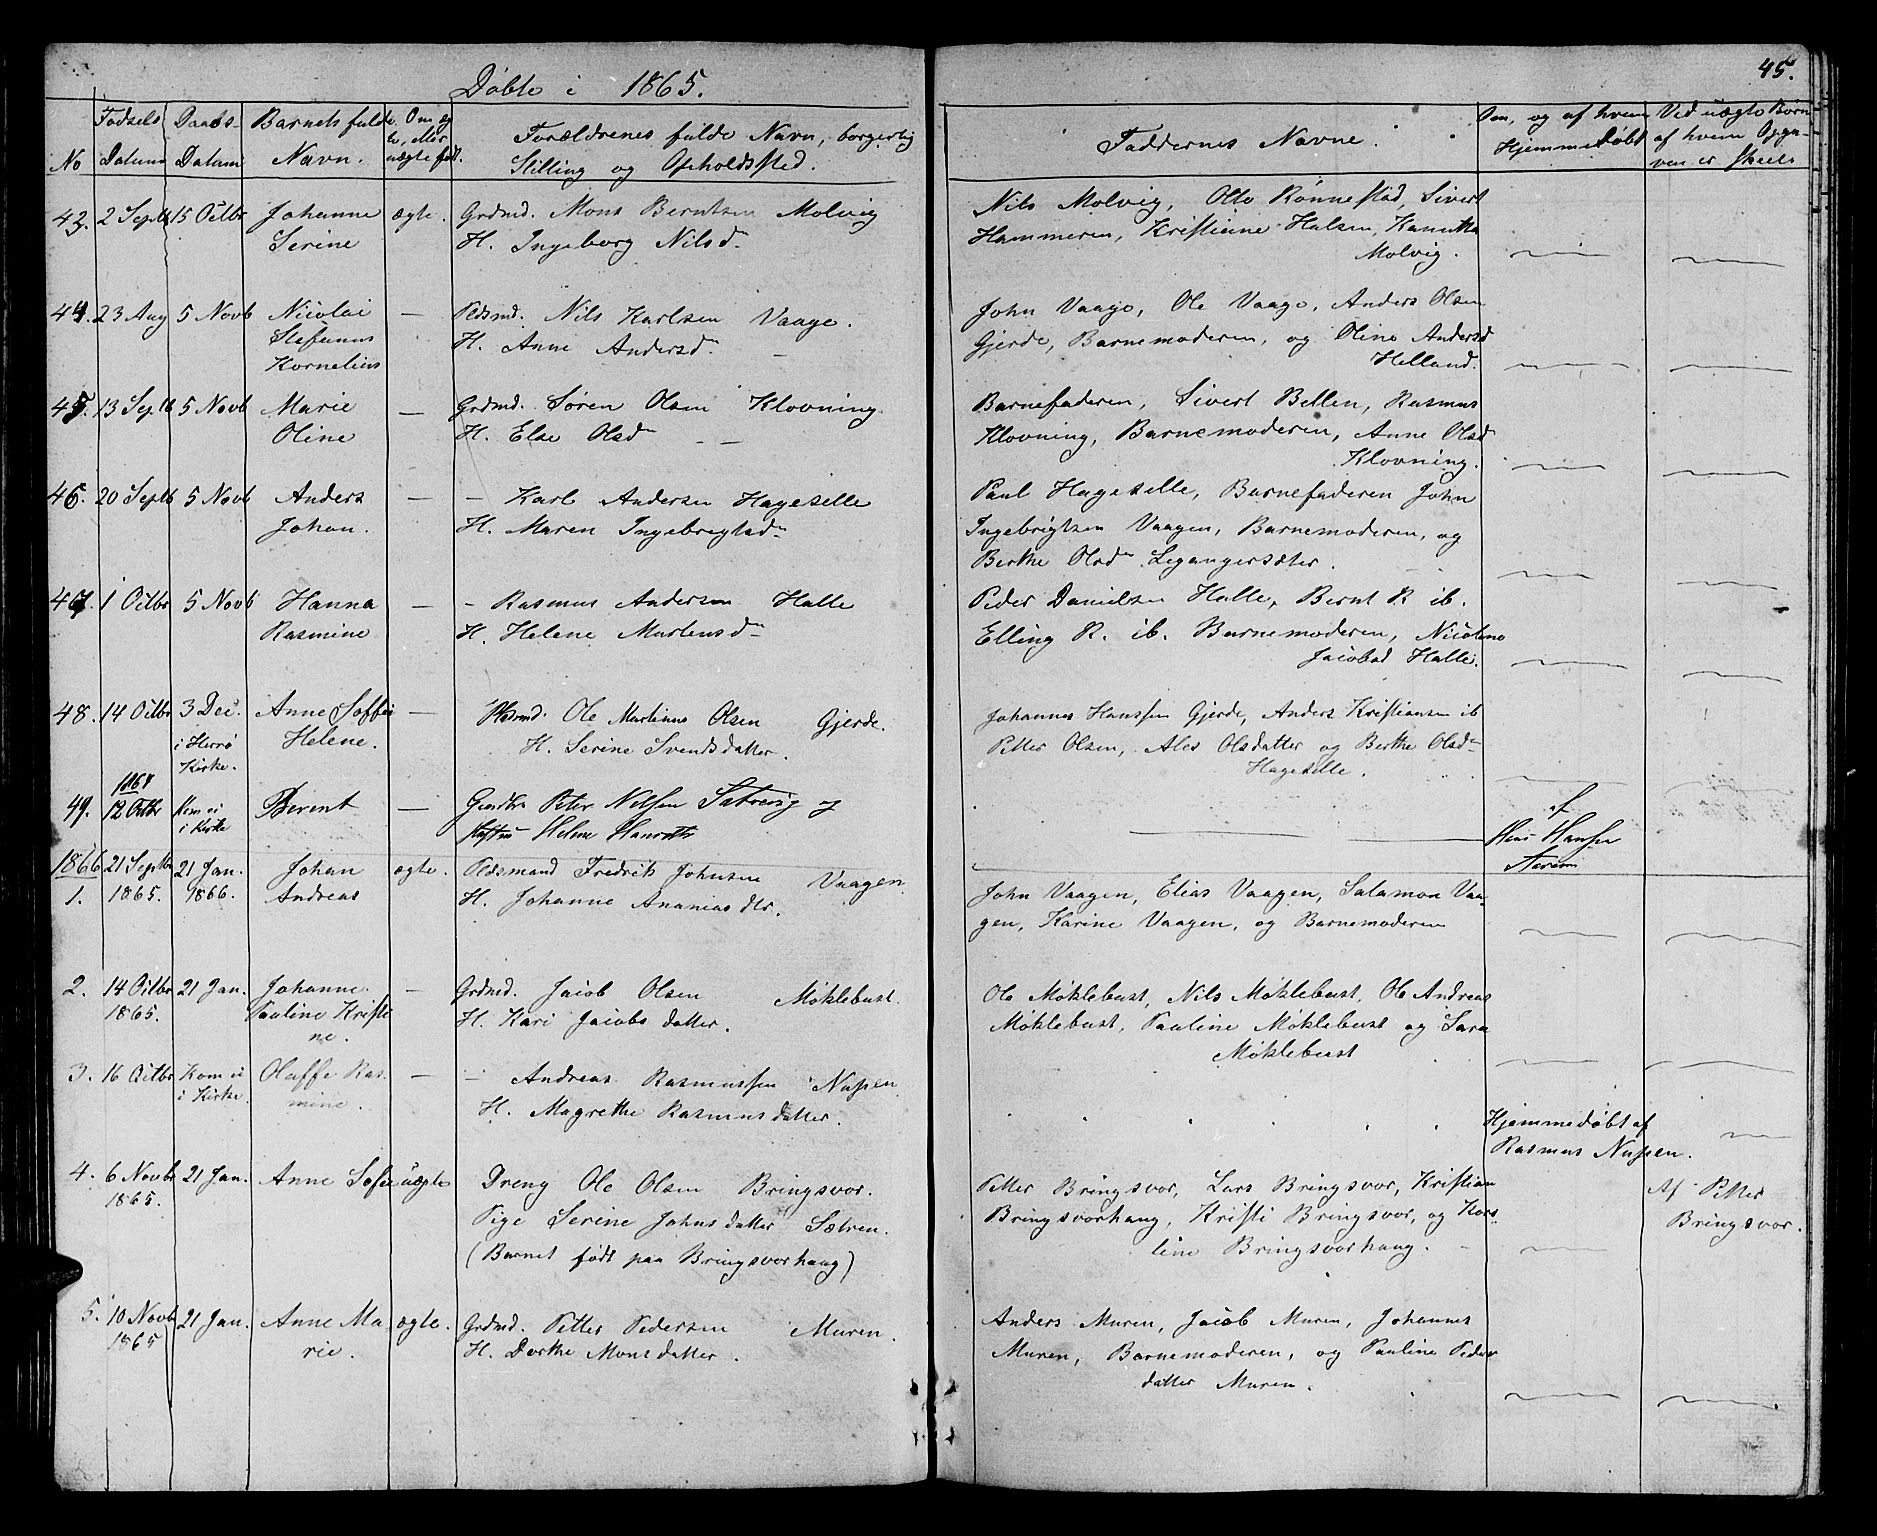 45.
Døbte i 1865.
No
Fødsels Datum
Daabs- Datum
Barnets fulde Navn.
Om æg te, eller uægte fød.
Forældrenes fulde Navn, borgerlig
Stilling og Opholdsted.
Faddernes Navne.
Om, og af hvem
Hjemmedøbt
Ved uægte Børn
af hvem Opga-
ven er skeet
43. 2 Septb 15 Octbr Johanne ægte. Grdmd. Mons Berntsen Molvig
Serine H. Ingeborg Nilsdn
Nils Molvig, Otto Rønnestad, Sivert
Hammeren, Kristiane Halsen, Kanutta
Molvig.
44. 23 Aug 5 Novb Nicolai — Pldsmd. Nils Karlsen Vaage.
Stefanus H. Anne Andersdn
Kornelius
John Vaage, Ole Vaage, Anders Olsen
Gjerde, Barnemoderen, og Oline Andersd
Helland.
45. 13 Septb 5 Novb Marie — Grdmd. Søren Olsen Klovning
Oline H. Else Olsdn — —
Barnefaderen, Sivert Bellen, Rasmus
Klovning, Barnemoderen, Anne Olsdn
Klovning.
46. 20 Septb 5 Novb Anders — — Karl Andersen Hageselle
Johan. H. Maren Ingebregtsdn
Paul Hageselle, Barnefaderen John
Ingebrigtsen Vaagen, Barnemoderen, og
Berthe Olsdn Legangersæter.
47. 1 Octbr 5 Novb Hanna — — Rasmus Andersen Halle
Rasmine H. Helene Martensdn
Peder Danielsen Halle, Bernt R. ib.
Elling R. ib. Barnemoderen, Nicoline
Jacobsd Halle.
48. 14 Octbr 3 Dec. Anne Soffie — Pldsmd. Ole Martinus Olsen Gjerde.
i Herrø Helene. H. Serine Svendsdatter.
Kirke.
Johannes Hanssen Gjerde, Anders Kristiansen ib
Petter Olsen, Ales Olsdatter og Berthe Olsdn
Hageselle.
1864
49. 12 Octbr Kom ei Berent — Peter Nilsen Sætrevig og
i Kirke Helene
af
Hans Hansen
1866 21 Septbr 21 Jan. Johan ægte. Pldsmand Fredrik Johnsen Vaagen.
1. 1865. 1866. Andreas H. Johanne Ananias dtr.
John Vaagen, Elias Vaagen, Salamon Vaa-
gen, Karine Vaagen, og Barnemoderen
2. 14 Octbr 21 Jan. Johanne — Grdmd. Jacob Olsen Møklebust.
1865. Pauline Kristi H. Kari Jacobsdatter.
ne.
Ole Møklebust, Nils Møklebust, Ole Andreas
Møklebust, Pauline Møklebust og Sara
Møklebust
3. 16 Octbr Kom ei Oluffe Ras- — — Andreas Rasmussen Nupen
i Kirke. mine. H. Magrethe Rasmusdatter.
Hjemmedøbt af
Rasmus Nupen.
4. 6 Novbr 21 Jan. Anne Sofie uægte Dreng Ole Olsen Bringsvor.
1865. Pige Serine Johnsdatter Sætren.
(Barnet født paa Bringsvorhaug)
Petter Bringsvor, Lars Bringsvor, Kristian
Bringsvorhaug, Kristi Bringsvor, og Kor-
line Bringsvorhaug.
Af Petter
Bringsvor.
5. 10 Novb 21 Jan. Anne Ma ægte. Grdmd. Petter Pedersen Muren.
1865 rie. H. Dorthe Monsdatter.
Anders Muren, Jacob Muren, Johannes
Muren, Barnemoderen, og Pauline Peders
datter Muren.